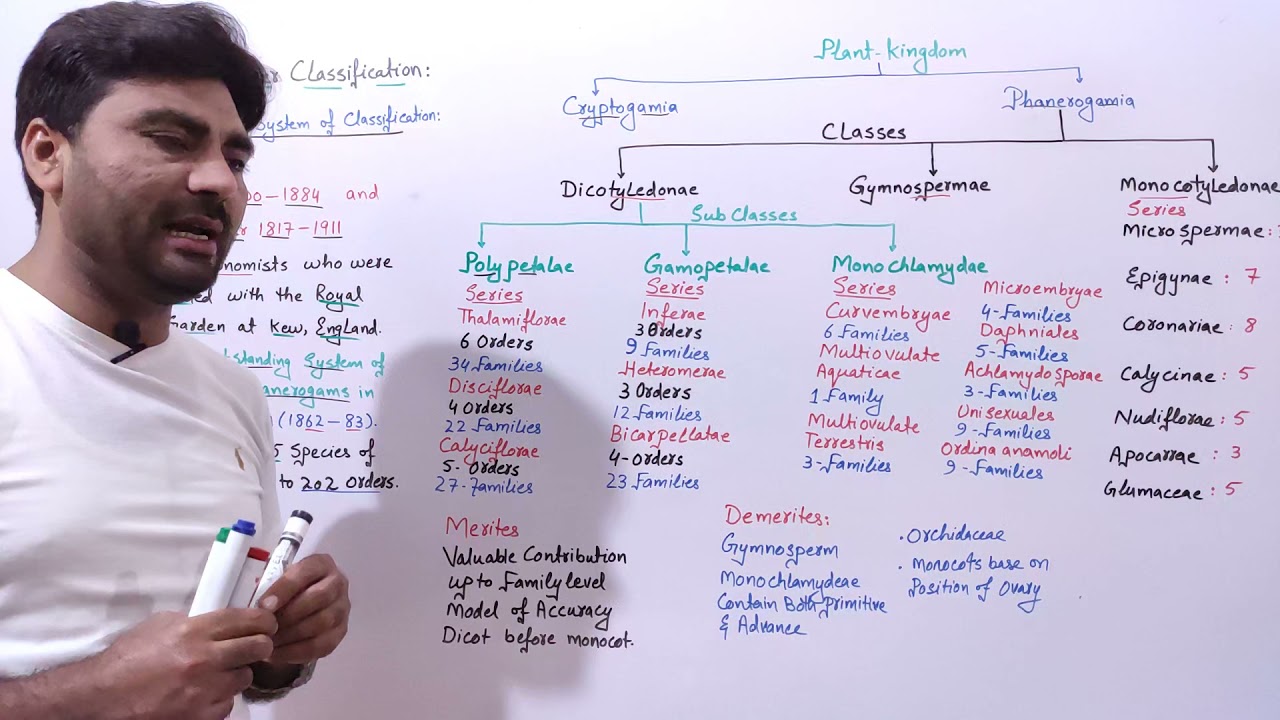 Classification:
System of Classification:
00-1884 and
1817-1911
onomists who were
with the Royal
Garden at Kew, England.
standing System of
anerogams in
(1862-83).
5 Species of
to 202 Orders.
Plant-kingdom
Cryptogamia
Phanerogamia
Classes
Dicotyledonae
Gymnospermae
Monocotyledonae
Sub Classes
Polypetalae
Series
Thalamiflorae
6 Orders
34 Families
Disciflorae
4 Orders
22 Families
Calyciflorae
5-Orders
27-Families
Gamopetalae
Series
Inferae
3 Orders
9 Families
Heteromerae
3 Orders
12 Families
Bicarpellatae
4-Orders
23 Families
Monochlamydae
Series
Curvembryae
6 Families
Multiovulate
Aquaticae
1 Family
Multiovulate
Terrestris
3-Families
Microembryae
4-Families
Daphniales
5-Families
Achlamydosporae
3-Families
Unisexuales
9-Families
Ordina anamoli
9-Families
Series
Microspermae:
Epigynae : 7
Coronariae : 8
Calycinae : 5
Nudiflorae : 5
Apocarrae : 3
Glumaceae : 5
Merites
Valuable Contribution
up to Family level
Model of Accuracy
Dicot before monocot.
Demerites:
Gymnosperm
Monochlamydeae
Contain Both primitive
& Advance
. Orchidaceae
. Monocots base on
Position of Ovary